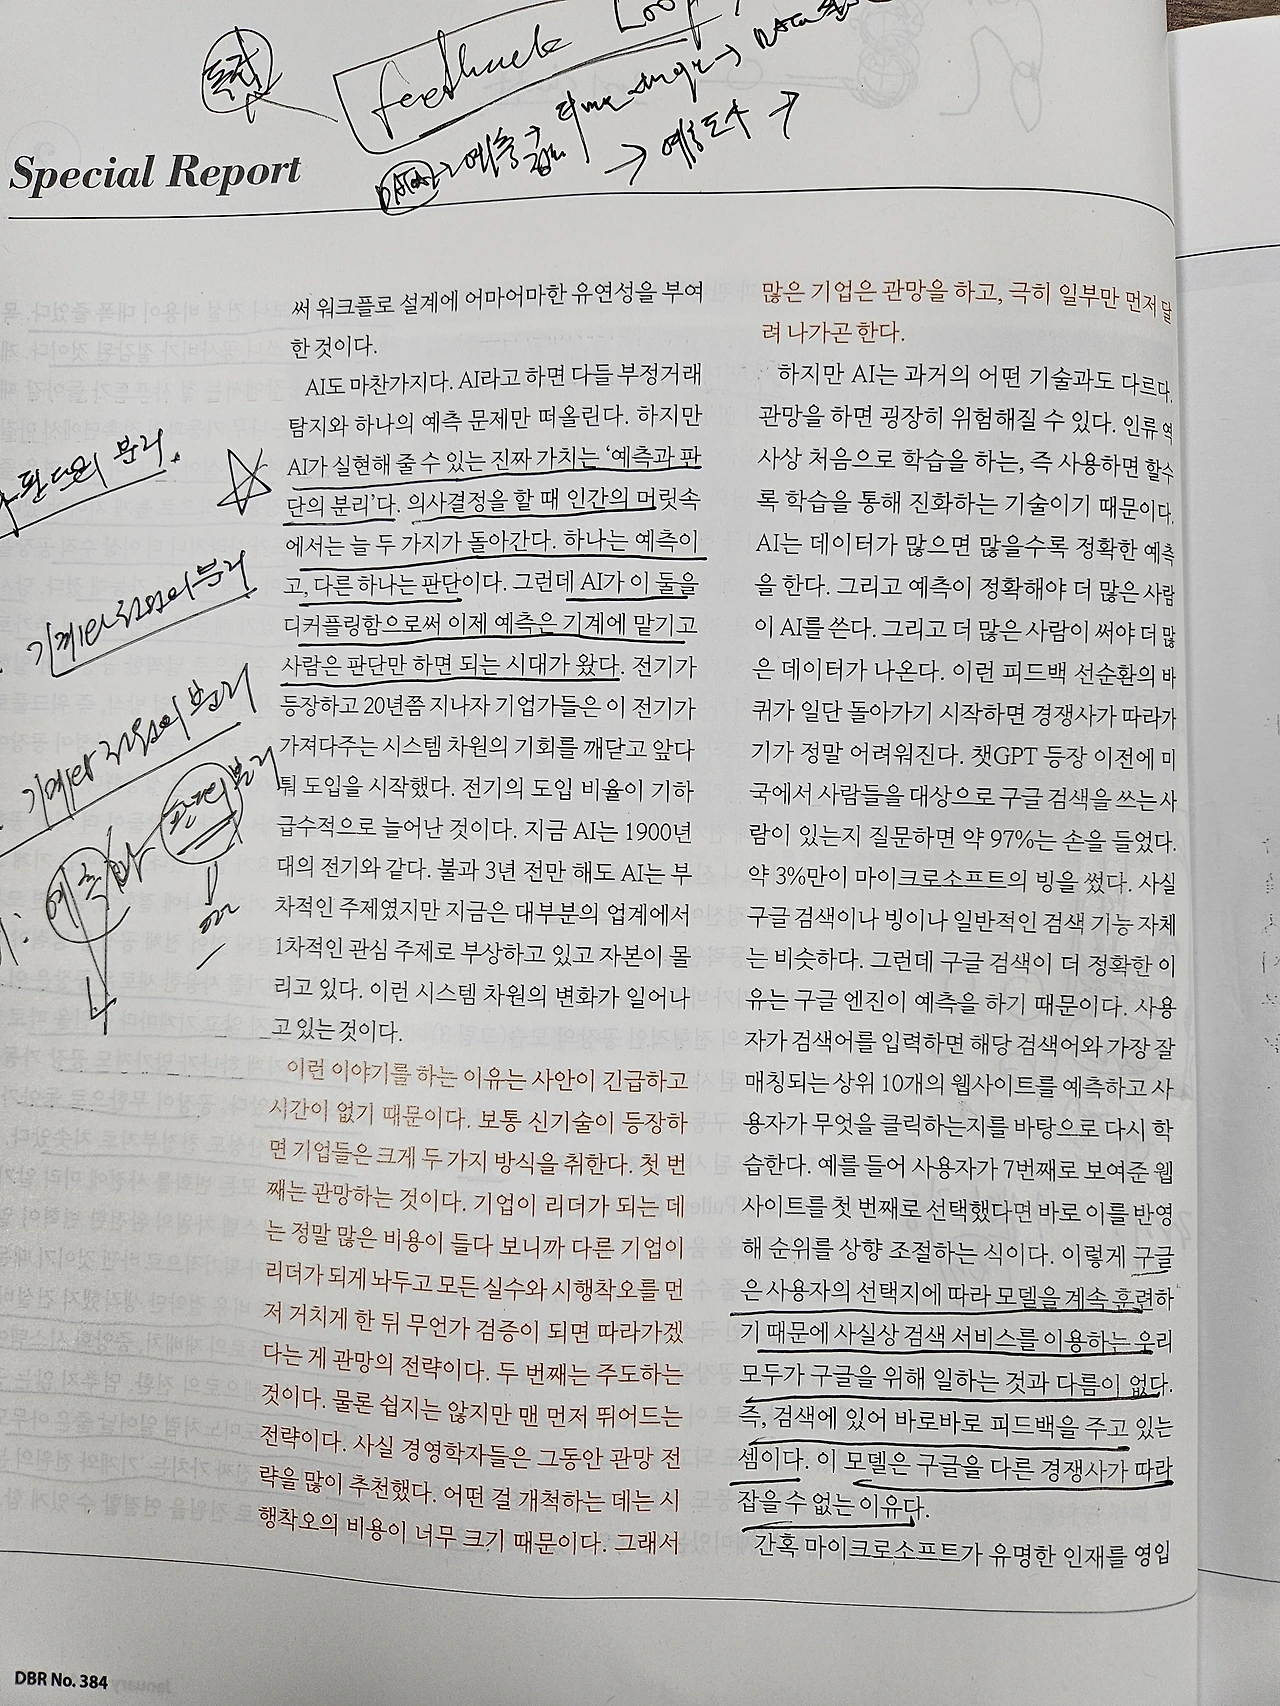 독점
feedback Loop
DATA → 예측 →
→ 예측도 수 →
Special Report
써 워크플로 설계에 어마어마한 유연성을 부여
한 것이다.
AI도 마찬가지다. AI라고 하면 다들 부정거래
탐지와 하나의 예측 문제만 떠올린다. 하지만
AI가 실현해 줄 수 있는 진짜 가치는 ‘예측과 판
단의 분리’다. 의사결정을 할 때 인간의 머릿속
에서는 늘 두 가지가 돌아간다. 하나는 예측이
고, 다른 하나는 판단이다. 그런데 AI가 이 둘을
디커플링함으로써 이제 예측은 기계에 맡기고
사람은 판단만 하면 되는 시대가 왔다. 전기가
등장하고 20년쯤 지나자 기업가들은 이 전기가
가져다주는 시스템 차원의 기회를 깨닫고 앞다
퉈 도입을 시작했다. 전기의 도입 비율이 기하
급수적으로 늘어난 것이다. 지금 AI는 1900년
대의 전기와 같다. 불과 3년 전만 해도 AI는 부
차적인 주제였지만 지금은 대부분의 업계에서
1차적인 관심 주제로 부상하고 있고 자본이 몰
리고 있다. 이런 시스템 차원의 변화가 일어나
고 있는 것이다.
이런 이야기를 하는 이유는 사안이 긴급하고
시간이 없기 때문이다. 보통 신기술이 등장하
면 기업들은 크게 두 가지 방식을 취한다. 첫 번
째는 관망하는 것이다. 기업이 리더가 되는 데
는 정말 많은 비용이 들다 보니까 다른 기업이
리더가 되게 놔두고 모든 실수와 시행착오를 먼
저 거치게 한 뒤 무언가 검증이 되면 따라가겠
다는 게 관망의 전략이다. 두 번째는 주도하는
것이다. 물론 쉽지는 않지만 맨 먼저 뛰어드는
전략이다. 사실 경영학자들은 그동안 관망 전
략을 많이 추천했다. 어떤 걸 개척하는 데는 시
행착오의 비용이 너무 크기 때문이다. 그래서
많은 기업은 관망을 하고, 극히 일부만 먼저 달
려 나가곤 한다.
하지만 AI는 과거의 어떤 기술과도 다르다.
관망을 하면 굉장히 위험해질 수 있다. 인류 역
사상 처음으로 학습을 하는, 즉 사용하면 할수
록 학습을 통해 진화하는 기술이기 때문이다.
AI는 데이터가 많으면 많을수록 정확한 예측
을 한다. 그리고 예측이 정확해야 더 많은 사람
이 AI를 쓴다. 그리고 더 많은 사람이 써야 더 많
은 데이터가 나온다. 이런 피드백 선순환의 바
퀴가 일단 돌아가기 시작하면 경쟁사가 따라가
기가 정말 어려워진다. 챗GPT 등장 이전에 미
국에서 사람들을 대상으로 구글 검색을 쓰는 사
람이 있는지 질문하면 약 97%는 손을 들었다.
약 3%만이 마이크로소프트의 빙을 썼다. 사실
구글 검색이나 빙이나 일반적인 검색 기능 자체
는 비슷하다. 그런데 구글 검색이 더 정확한 이
유는 구글 엔진이 예측을 하기 때문이다. 사용
자가 검색어를 입력하면 해당 검색어와 가장 잘
매칭되는 상위 10개의 웹사이트를 예측하고 사
용자가 무엇을 클릭하는지를 바탕으로 다시 학
습한다. 예를 들어 사용자가 7번째로 보여준 웹
사이트를 첫 번째로 선택했다면 바로 이를 반영
해 순위를 상향 조절하는 식이다. 이렇게 구글
은 사용자의 선택지에 따라 모델을 계속 훈련하
기 때문에 사실상 검색 서비스를 이용하는 우리
모두가 구글을 위해 일하는 것과 다름이 없다.
즉, 검색에 있어 바로바로 피드백을 주고 있는
셈이다. 이 모델은 구글을 다른 경쟁사가 따라
잡을 수 없는 이유다.
간혹 마이크로소프트가 유명한 인재를 영입
판단의 분리.
기계와 전원의 분리
기계와 전원의 분리
예측과 판단의 분리
DBR No. 384